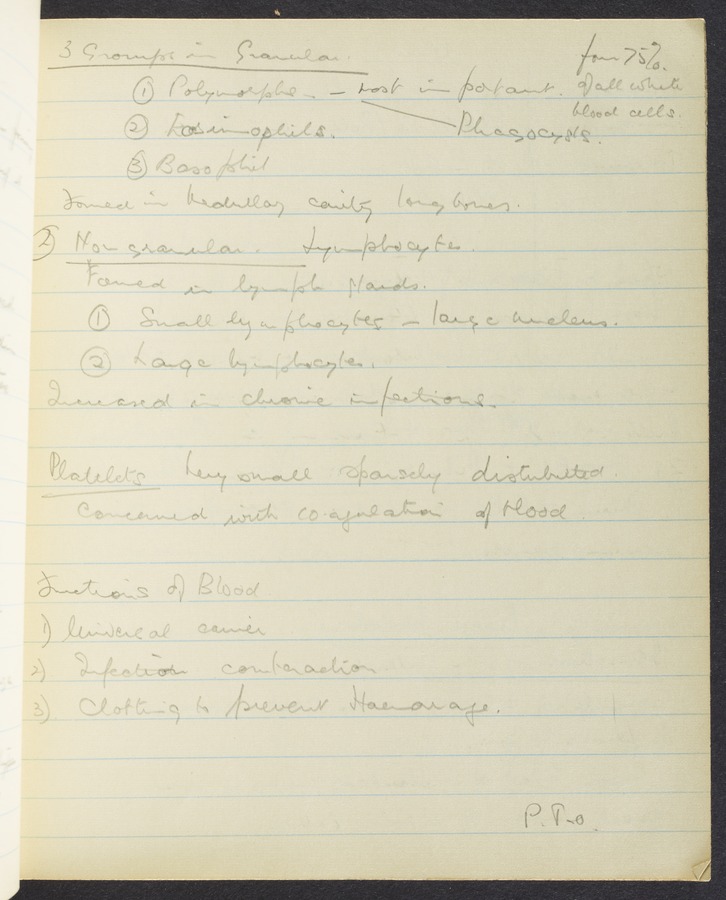 3 Groups in Granular.
① Polymorphs - most important. form 75% of all white blood cells.
② Eosinophils. Phagocysts.
③ Basophil
Formed in Medullary cavity long bones.
② Non granular. Lymphocytes.
Formed in lymph glands.
① Small lymphocytes - large nucleus.
② Large lymphocytes.
Increased in chronic infections.
Platelets Very small sparsely distributed.
Concerned with co-agulation of blood
Functions of Blood
1) Universal carrier
2) Infection conteraction
3) Clotting to prevent Haemorrage.
P.T.O.